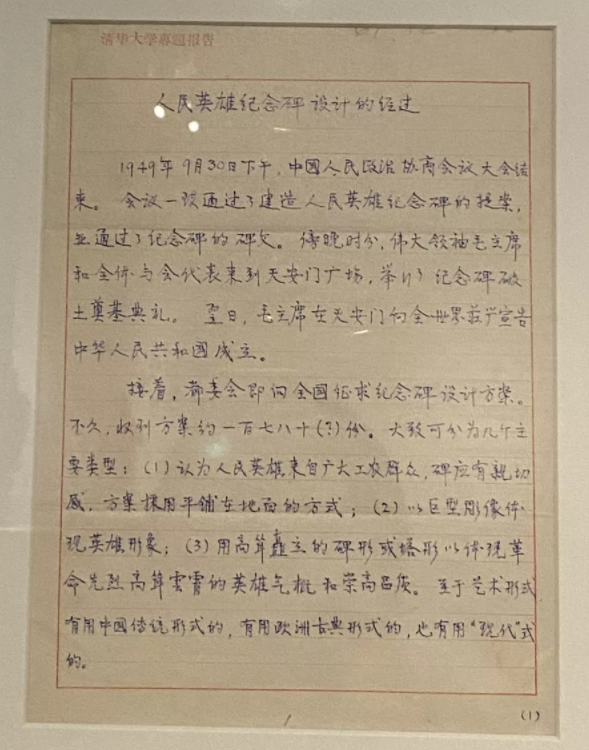 清华大学专题报告
人民英雄纪念碑设计的经过
1949年9月30日下午，中國人民政治协商会议大会结
束。会议一致通过了建造人民英雄纪念碑的提案，
并通过了纪念碑的碑文。傍晚时分，伟大领袖毛主席
和全体与会代表来到天安门广场，举行了纪念碑破
土奠基典礼。翌日，毛主席在天安门向全世界庄严宣告
中华人民共和國成立。
接着，都委会即向全国征求纪念碑设计方案。
不久，收到方案约一百七八十(?)份。大致可分为几个主
要类型：(1)认为人民英雄来自广大工农群众，碑应有親切
感，方案採用平铺在地面的方式；(2)以巨型彫像体
现英雄形象；(3)用高耸矗立的碑形或塔形以体现革
命先烈高耸雲霄的英雄气概和崇高品质。至于艺术形式
有用中國传统形式的，有用欧洲古典形式的，也有用“现代”式
的。
(1)